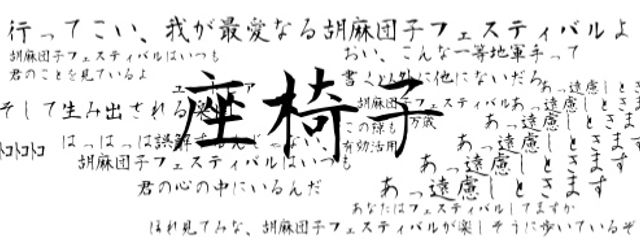 行ってこい、我が最愛なる胡麻団子フェスティバルよ
胡麻団子フェスティバルはいつも
君のことを見ているよ
おい、こんな一等地軍手って
書く以外に他にないだろ
そして生み出される楽
座椅子
胡麻団子フェスティバル
万歳
この緑も
有効活用
あっ遠慮しときます
あっ遠慮しときます
あっ遠慮しときます
あっ遠慮しときます
あっ遠慮しときます
トコトコトコ
はっはっは誤解するんじゃない、
胡麻団子フェスティバルはいつも
君の心の中にいるんだ
あなたはフェスティバルしてますか
ほれ見てみな、胡麻団子フェスティバルが楽しそうに歩いているぞ